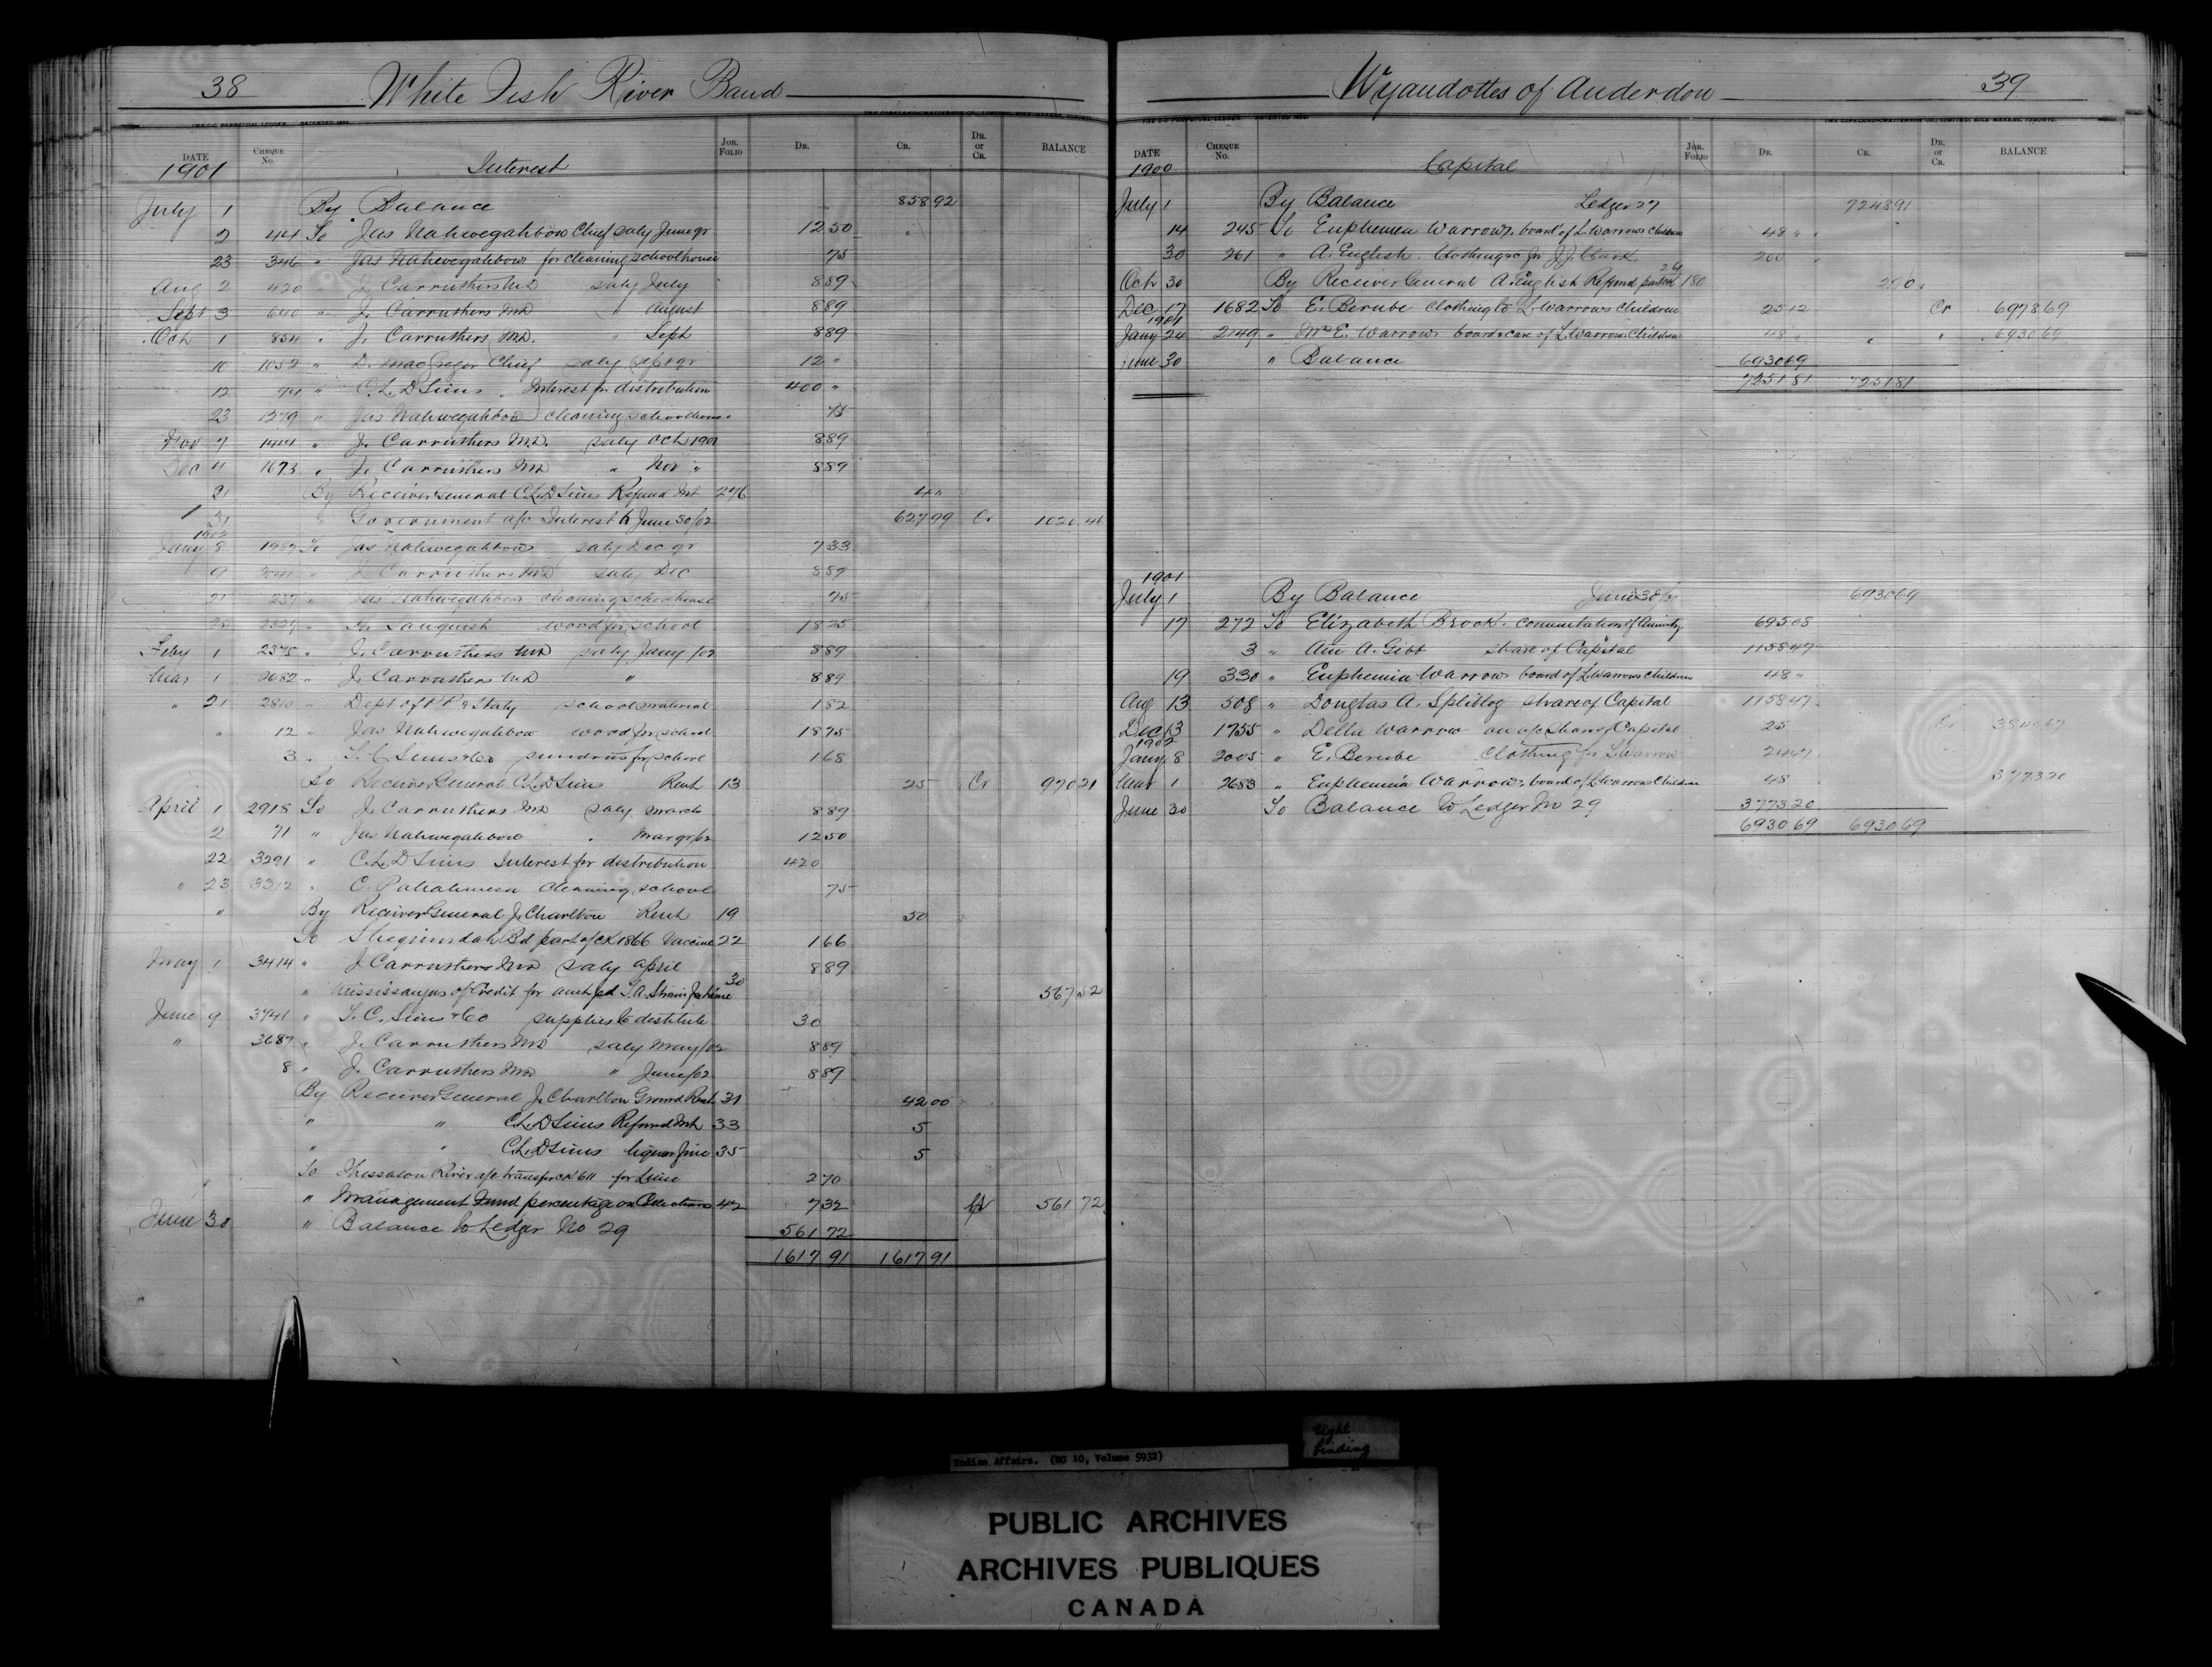 38 White Fish River Band
THE C-C PERPETUAL LEDGER PATENTED 1894 THE COPELAND-CHATTERSON CO., LIMITED, SOLE MAKERS, TORONTO.
DATE CHEQUE No. JOR. FOLIO DR. CR. DR. or CR. BALANCE
1901 Interest
July 1 By Balance 858 92
2 44 To Jas Nahwegahbow Chief saly June qr 12 50
23 346 " Jas Nahwegahbow for cleaning schoolhouse 75
Aug 2 420 " J. Carruthers MD saly July 8 89
Sept 3 640 " J. Carruthers MD " August 8 89
Oct 1 854 " J. Carruthers MD. " Sept 8 89
10 1052 " D. MacGregor Chief saly Sept qr 12 "
12 94 " C.L.D Sims Interest for distribution 400 "
23 1379 " Jas Nahwegahbow cleaning schoolhouse 75
Nov 7 1444 " J. Carruthers M.D. saly Oct 1901 8 89
Dec 11 1673 " J. Carruthers MD " Nov " 8 89
21 By Receiver General C.L.D Sims Refund Int 276 4 "
31 " Government a/c Interest to June 30/02 627 99 Cr 1020 46
1902
Jany 8 1987 To Jas Nahwegahbow saly Dec qr 7 33
9 2041 " J. Carruthers MD saly Dec 8 89
21 237 " Jas Nahwegahbow cleaning schoolhouse 75
2329 " wood for school 18 25
Feby 1 2375 " J. Carruthers MD saly Jany /02 8 89
Mar 1 2682 " J. Carruthers MD " 8 89
" 21 2810 " Dept of P.P. & Staty school material 1 82
" 12 " Jas Nahwegahbow wood for school 18 75
3 " T.C. Sims & Co sundries for school 1 68
To Receiver General C.L.D Sims Rent 13 25 Cr 970 21
April 1 2918 To J. Carruthers MD saly March 8 89
2 71 " Jas Nahwegahbow " Mar qr/02 12 50
22 3291 " C.L.D Sims Interest for distribution 420
" 23 3312 " C. cleaning school 75
" By Receiver General J. Charlton Rent 19 50
To Sheguiandah Bd part of CK 1866 Vaccine 22 1 66
May 1 3414 " J Carruthers MD saly April 8 89
" Mississaugas of Credit for amt pd 30 567 52
June 9 3741 " T.C. Sims & Co supplies to destitute 30
" 3687 " J. Carruthers MD saly May/02 8 89
8 " J. Carruthers MD " June/02 8 89
By Receiver General J. Charlton Ground Rent 31 42 00
" " C.L.D Sims Refund Int 33 5
" " C.L.D Sims liquor fine 35 5
To Thessalon River a/c transfer CK 611 for 2 70
" Management Fund percentage on Collections 42 7 32 Cr 561 72
June 30 " Balance to Ledger No 29 561 72
1617 91 1617 91
Wyandottes of Anderdon 39
THE C-C PERPETUAL LEDGER PATENTED 1894 THE COPELAND-CHATTERSON CO., LIMITED, SOLE MAKERS, TORONTO.
DATE CHEQUE No. JOR. FOLIO DR. CR. DR. or CR. BALANCE
1900 Capital
July 1 By Balance Ledger 27 7248 91
14 245 To Euphemia Warrow, board of L. Warrows children 48 "
30 261 " A. English. Clothing &c for J.J. Clark 200
Oct 30 By Receiver General A. English Refund part ck 261 180 2 90
Dec 17 1682 To E. Berube clothing to L. Warrows children 25 12 Cr 6978 69
1901
Jany 24 2149 " Mrs E. Warrow board & care of L. Warrows Children 48 " 6930 69
June 30 " Balance 6930 69
7251 81 7251 81
1901
July 1 By Balance June 30/01 6930 69
17 272 To Elizabeth Brook. commutation of annuity 695 08
3 " A. Gibb share of Capital 1158 47
19 330 " Euphemia Warrow board of L. Warrows children 48 "
Aug 13 508 " Douglas A. Splitlog share of Capital 1158 47
Dec 13 1755 " Della Warrow on a/c share of Capital 25 Cr
1902
Jany 8 2005 " E. Berube Clothing for L. Warrow 24 47
Mar 1 2683 " Euphemia Warrow, board of L. Warrows Children 48 3773 20
June 30 To Balance to Ledger No 29 3773 20
6930 69 6930 69
tight binding
Indian Affairs. (RG 10, Volume 5932)
PUBLIC ARCHIVES
ARCHIVES PUBLIQUES
CANADA